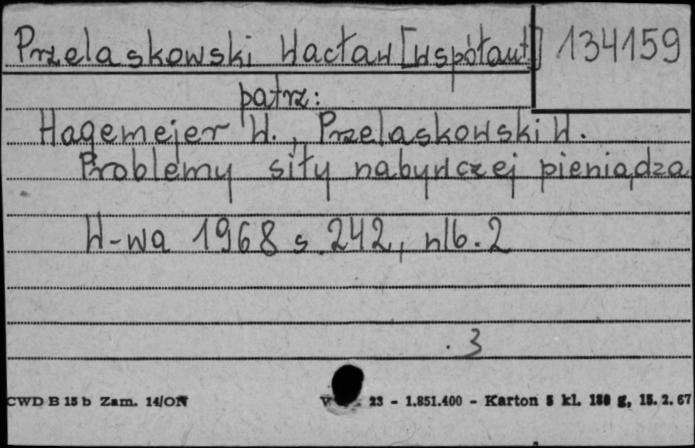 Przelaskowski Wacław [współaut.] 134159
patrz:
Hagemejer W., Przelaskowski W.
Problemy siły nabywczej pieniądza
W-wa 1968 s. 242, nlb. 2
. 3
CWD B 15 b Zam. 14/ON 23 - 1.851.400 - Karton 5 kl. 180 g, 15. 2. 67